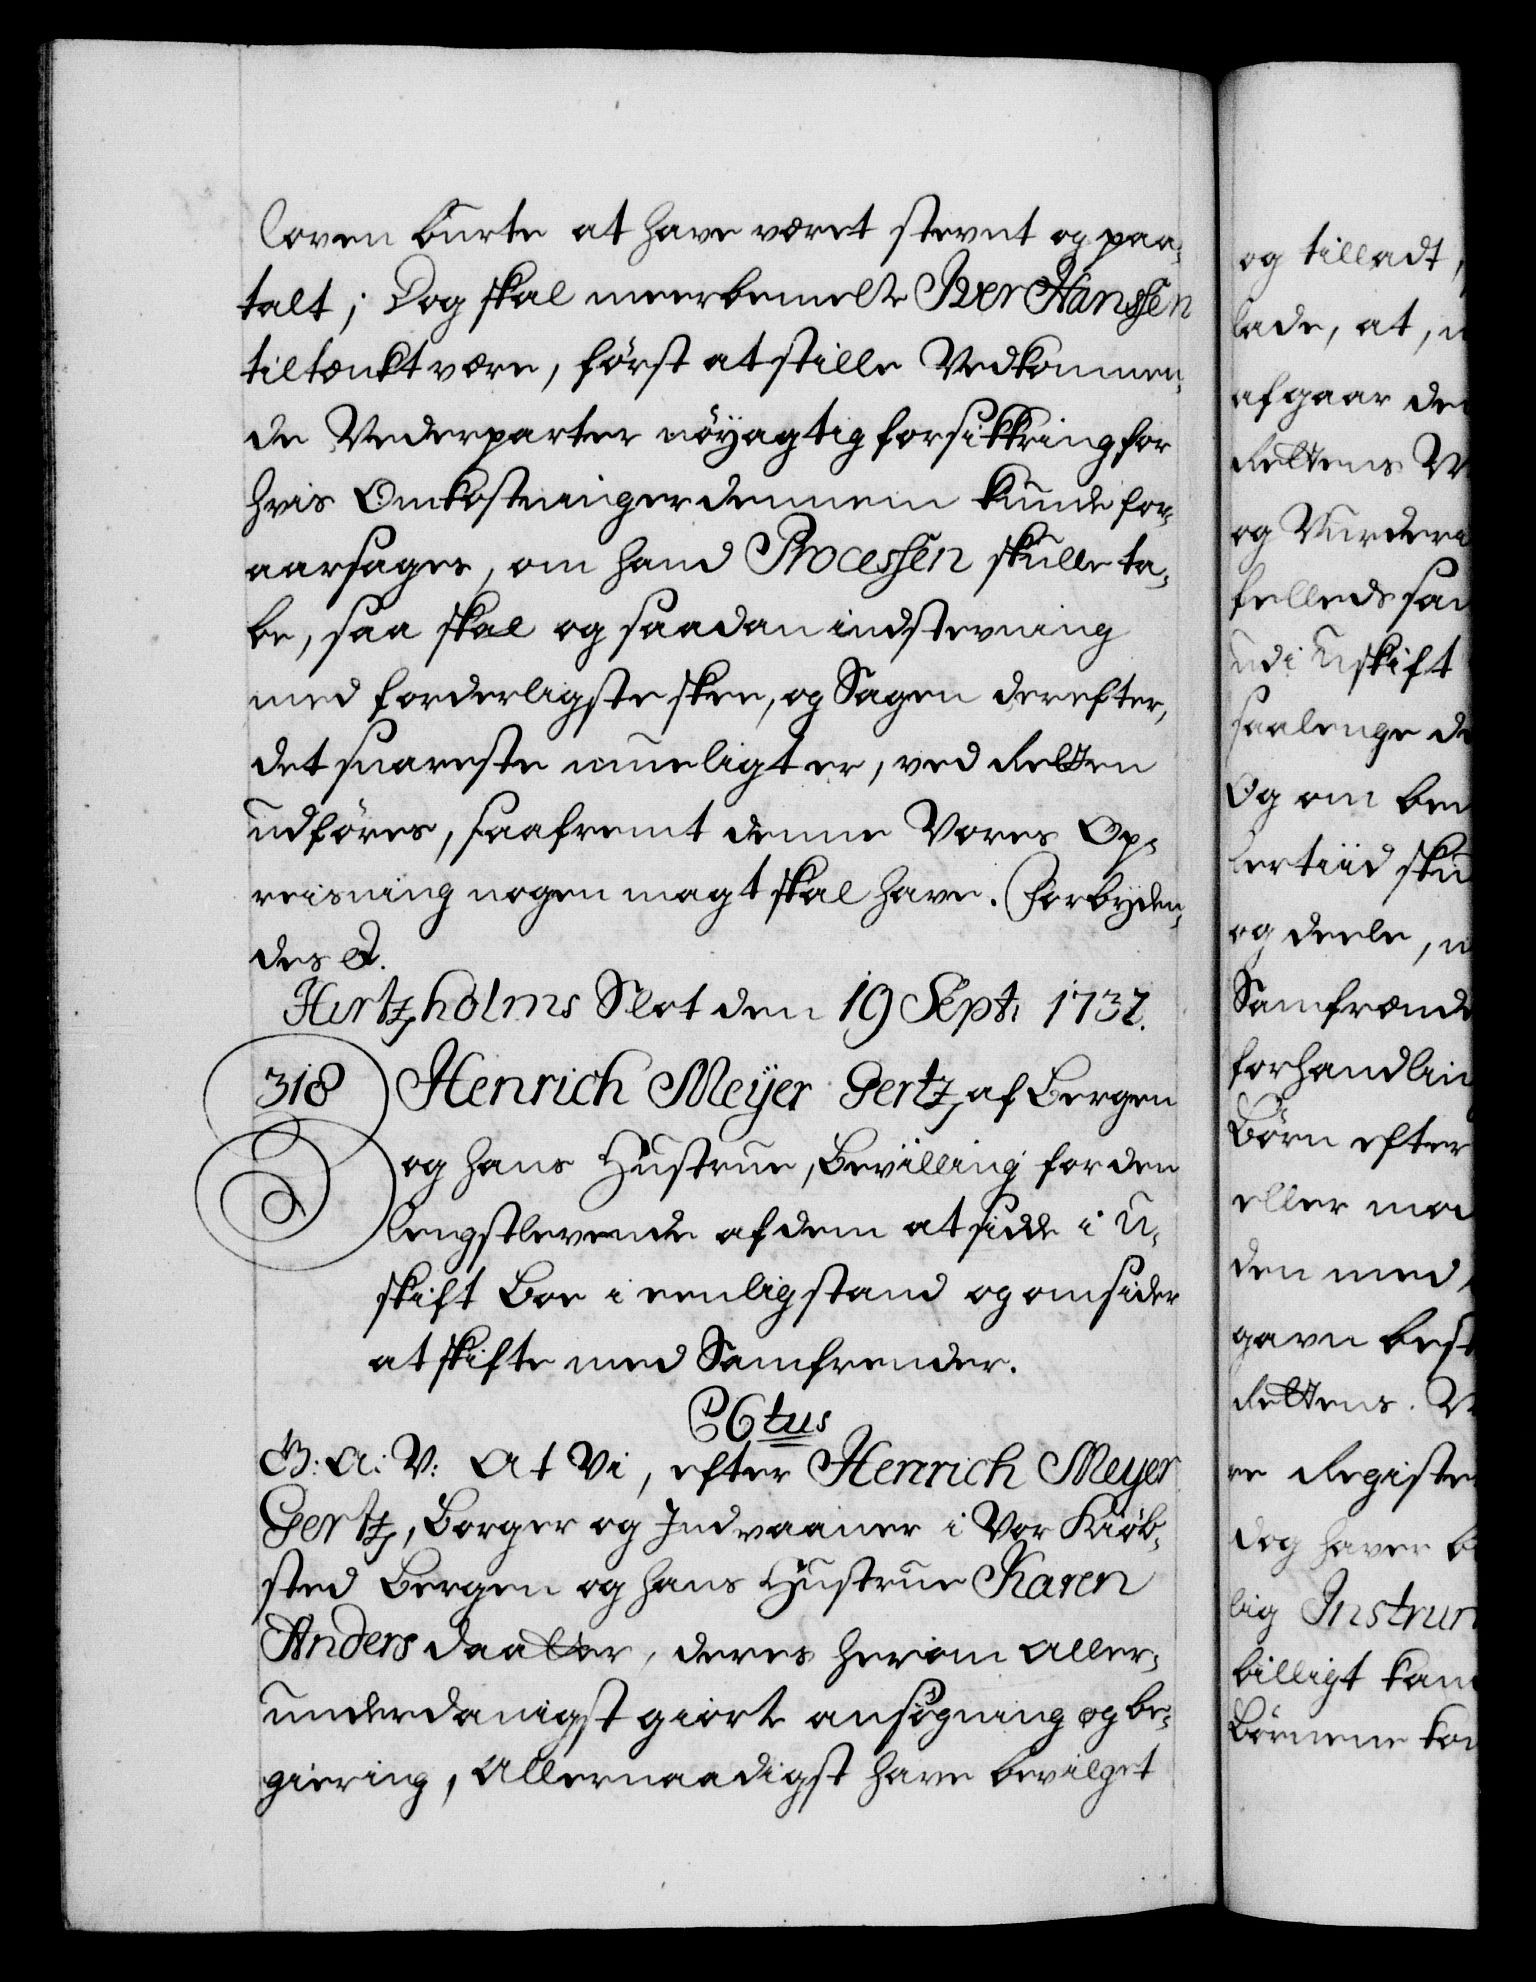 loven burte at have været stevnt og paa-
talt; Dog skal meerbemelte Iver Hanssen
tiltænkt være, først at stille Vedkommen-
de Vederparter nöyagtig forsikkring for
hvis Omkostninger dennem kunde for-
aarsages, om hand Processen skulle ta-
be, saa skal og saadan indstevning
med forderligste skee, og Sagen derefter,
det snareste mueligt er, ved Retten
udføres, saafremt denne Vores Op-
reisning nogen magt skal have. Forbyden-
des &.
Hirtzholms Slot den 19 Sept: 1732.
318 Henrich Meyer Gertz, af Bergen
og hans Hustrue, Bevilling for den
lengstlevende af dem at sidde i U-
skift Boe i eenlig stand og omsider
at skifte med Samfrender.
G: A: V: At Vi, efter Henrich Meyer
Gertz, Borger og Indvaaner i Vor Kiøb-
sted Bergen og hans Hustrue Karen
Anders daatter, deres herom Aller-
underdanigst giorte ansøgning og be-
giering, Allernaadigst have bevilget
og tilladt,
lade, at,
afgaar
Rettens
og
felleds
udi Uskift
saalenge
Og om
lertiid
og deele,
Samfrænde
forhandlin
Börn efter
eller
den med
gavn
Rettens.
re
dog haver
lig
billigt
Börnene